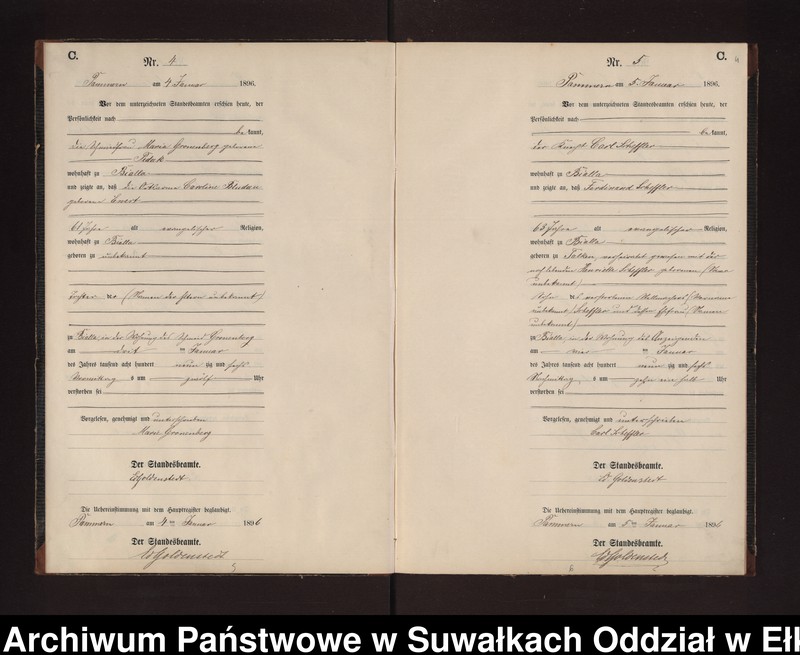 C.
Nr. 4
Pammern am 4 Januar 1896.
Vor dem unterzeichneten Standesbeamten erschien heute, der
Persönlichkeit nach
be kannt,
die Marie Gronenberg geborene
wohnhaft zu Bialla
und zeigte an, daß die Caroline
geborene
61 Jahre alt evangelischer Religion,
wohnhaft zu Bialla
geboren zu unbekannt
Tochter der (Namen der Eltern unbekannt)
zu Bialla in der Wohnung des Gronenberg
am drei ten Januar
des Jahres tausend acht hundert neun zig und sechs
Vormittag s um zwölf Uhr
verstorben sei
Vorgelesen, genehmigt und unterschrieben
Marie Gronenberg
Der Standesbeamte.
Goldenstedt
Die Uebereinstimmung mit dem Hauptregister beglaubigt.
Pammern am 4ten Januar 1896
Der Standesbeamte.
Goldenstedt
C.
Nr. 5
Pammern am 5. Januar 1896.
Vor dem unterzeichneten Standesbeamten erschien heute, der
Persönlichkeit nach
be kannt,
der Knecht Carl Scheffler
wohnhaft zu Bialla
und zeigte an, daß Ferdinand Scheffler
65 Jahre alt evangelischer Religion,
wohnhaft zu Bialla
geboren zu verheirathet gewesen mit der
noch lebenden Henriette Scheffler geborenen (Name
unbekannt)
Sohn des verstorbenen (Vorname
unbekannt) Scheffler und dessen Ehefrau (Namen
unbekannt)
zu Bialla in der Wohnung des Anzeigenden
am vier ten Januar
des Jahres tausend acht hundert neun zig und sechs
Nachmittag s um zehn ein halb Uhr
verstorben sei
Vorgelesen, genehmigt und unterschrieben
Carl Scheffler
Der Standesbeamte.
Goldenstedt
Die Uebereinstimmung mit dem Hauptregister beglaubigt.
Pammern am 5ten Januar 1896
Der Standesbeamte.
Goldenstedt
Archiwum Państwowe w Suwałkach Oddział w Ełk